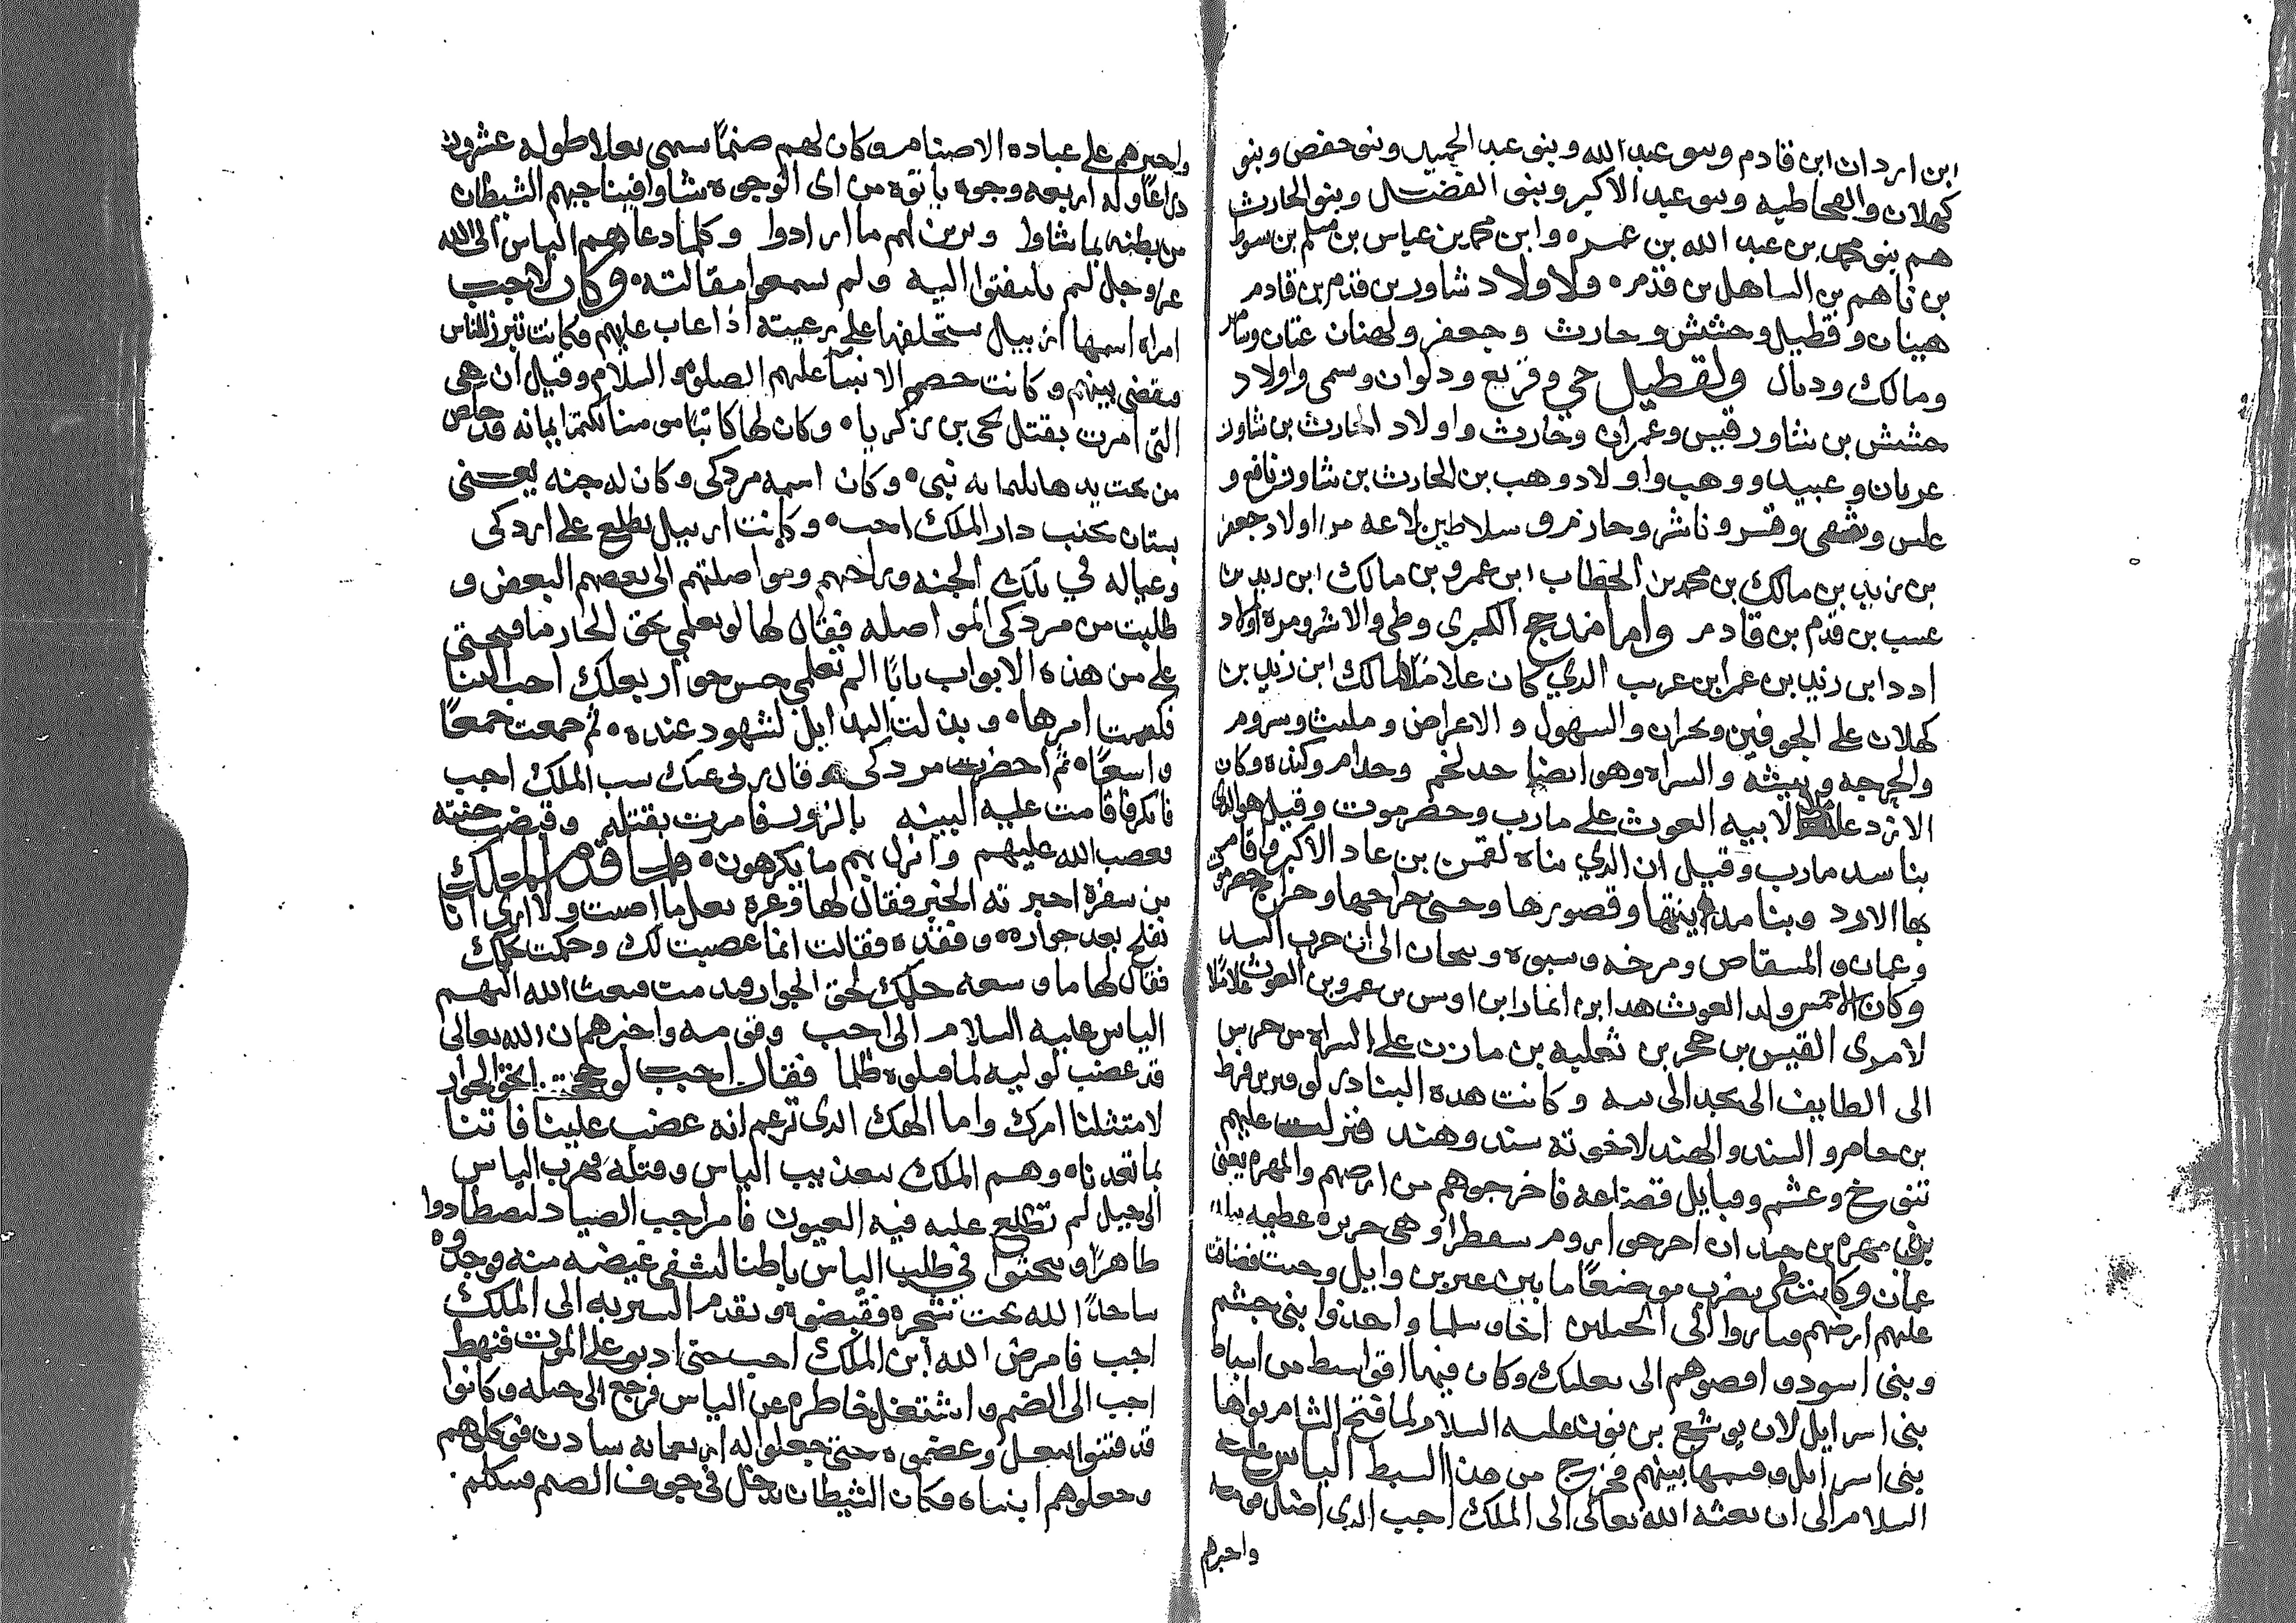 ابن اردان ابن قادم وبنو عبد الله وبنو عبد الحميد وبنو حفص وبنو
كهلان والقحاطيه وبنو عبد الاكبر وبنى الفضل وبنو الحارث
هم بنو محمد بن عبد الله بن عمره وابن محمد بن عياس بن مسلم بن
بن ناهم بن الساهل بن قدم ولاولاد شاور بن قدم بن قادم
هينان وقطيل وحشش وحارث وجعفر ولهنان عنان
ومالك وديال ولقطيل حي وقريع ودلوان وسمى واولاد
حشش بن شاور قيس وعمران وحارث واولاد الحارث بن شاور
عريان وعبيد ووهب واولاد وهب بن الحارث بن شاور نافع و
علس وناشر وحازم وسلاطين لاعه من اولاد جعفر
بن زيد بن مالك بن محمد بن الخطاب ابن عمرو بن مالك ابن زيد بن
بن قدم بن قادم واما مذحج الكبرى وطى والاشر ومره اولاد
ادد ابن زيد بن عمر ابن عريب الذي كان عاملا لمالك ابن زيد بن
كهلان على الجوفين ونجران والسهول والاعراض ومليث وسروم
والحرجه وبيشه والسراه وهو ايضا جد لخم وجدام وكنده وكان
الازد لابيه الغوث على مارب وحضرموت وقيل هو الذى
بنا سد مارب وقيل ان الذي بناه لقمن بن عاد الاكبر واقامت
بها الازد وبنا مدينتها وقصورها وجبى خراجها وخراج حضرموت
وعمان والمسقاص ومرخه وسبوه وسحان الى ان خرب السد
وكان ولد الغوث هذا ابن انمار ابن اوس بن عمرو بن الغوث عاملا
لامرى القيس بن حجر بن ثعلبه بن مازن على السراه من جرس
الى الطايف الى نجد الى وكانت هذه البنادر لوبر بن قرط
بن حام والسند والهند لاخوته سند وهند فنزلت عليهم
تنوخ وعشم وقبايل قضاعه فاخرجوهم من ارضهم والمهره يعنى
بنى مهره بن حيدان اخرجوا روم سقطرا وهى جزيره عظيمه
عمان وكانت طى بضرب موضعا ما بين عنز بن وايل وحيث فضاقت
عليهم ارضهم وساروا الى الجبلين اجا وسلما واخذوا بنى جشم
وبنى اسود واقصوهم الى بعلبك وكان فيها اقواسط من اسباط
بنى اسرايل لان يوشع بن نون عليه السلام لما فتح الشام بواها
بنى اسرايل وقسمها بينهم فخرج من هذا السبط الياس عليه
السلام الى ان بعثه الله تعالى الى الملك اجب الذى اضل قومه
واجبرهم
واجبرهم على عباده الاصنام وكان لهم صنما يسمى بعلا طوله عشرون
ذراعا وله اربعه وجوه ياتوه من اى الوجوه شاوا فيناجيهم الشيطان
من بطنه بما شاوا ويزين لهم ما ارادوا وكلما دعاهم الياس الى الله
عز وجل لم يلتفتوا اليه ولم يسمعوا مقالته وكان لاجب
امراه اسمها ازبيل يستخلفها على رعيته اذا غاب عليهم فكانت تبرز للناس
وتقضى بينهم وكانت خصم الانبيا عليهم الصلوه والسلام وقيل ان هى
التى امرت بقتل يحى بن زكريا وكان لها كاتبا مومنا يكتم ايمانه قد خلص
من تحت يدها ثلثمايه نبى وكان اسمه مردكى وكان له جنه يعنى
بستان بجنب دار الملك اجب وكانت ازبيل تطلع على اردكى
وعياله في تلك الجنه وتراحمهم ومواصلتهم الى بعضهم البعض و
طلبت من مردكى المواصله فقال لها لو تعلمى بحق الجار ما فتحتى
على من هذه الابواب بابا الم تعلمى حسن جوار بعلك اجب الينا
فكتمت امرها وبذلت البدايل لشهود عنده ثم جمعت جمعا
واسعا ثم احضرت مردكى وقال بلغنى عنك سب الملك اجب
فانكر فاقامت عليه البينه بالزور فامرت بقتله وقبضت جنته
فغضب الله عليهم وانزل بهم ما يكرهون ولما قدم الملك
من سفره اخبرته الخبر فقال لها فزعه بعل ما اصبت ولا ارى انا
نفلح بعد جواره وفقده فقالت انما غضبت لك وحكمت حكمك
فقال لها ما وسعه حلمك لحق الجوار فبعث الله اليهم
الياس عليه السلام الى اجب وقومه واخبرهم ان الله تعالى
قد غضب لوليه لما قتلوه ظلما فقال اجب لو بحق الجوار
لامتثلنا امرك واما الهك الذى تزعم انه غضب علينا فاتنا
بما تعدنا وهم الملك بتعذيب الياس وقتله فهرب الياس
الى جبل لم تطلع عليه فيه العيون فامر اجب الصياد ليصطادوا
ظاهرا ويبحثوا في طلب الياس باطنا ليشفى غيضه منه وجدوه
ساجدا لله تحت شجره فقبضوه وتقدم السريه الى الملك
اجب فامرض الله ابن الملك اجب حتى ادنوه على الموت فنهط
اجب الى الصنم واشتغل خاطره عن الياس فرجع الى جبله وكانوا
قد فتنوا ببعل وعضموه حتى جعلوا له اربعمايه سادن فوكلوهم
وجعلوهم انبياه فكان الشيطان يدخل في جوف الصنم فيكلم